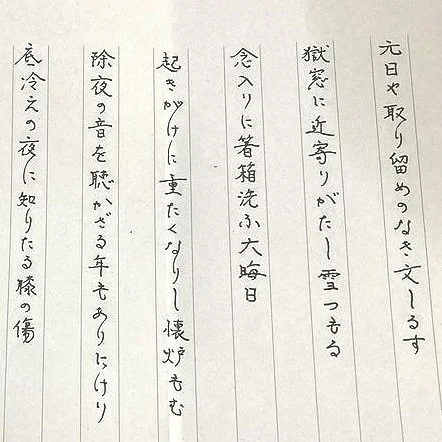 元日や取り留めのなき文しるす
獄窓に近寄りがたし雪つもる
念入りに箸箱洗ふ大晦日
起きがけに重たくなりし懐炉もむ
除夜の音を聴かざる年もありにけり
底冷えの夜に知りたる膝の傷